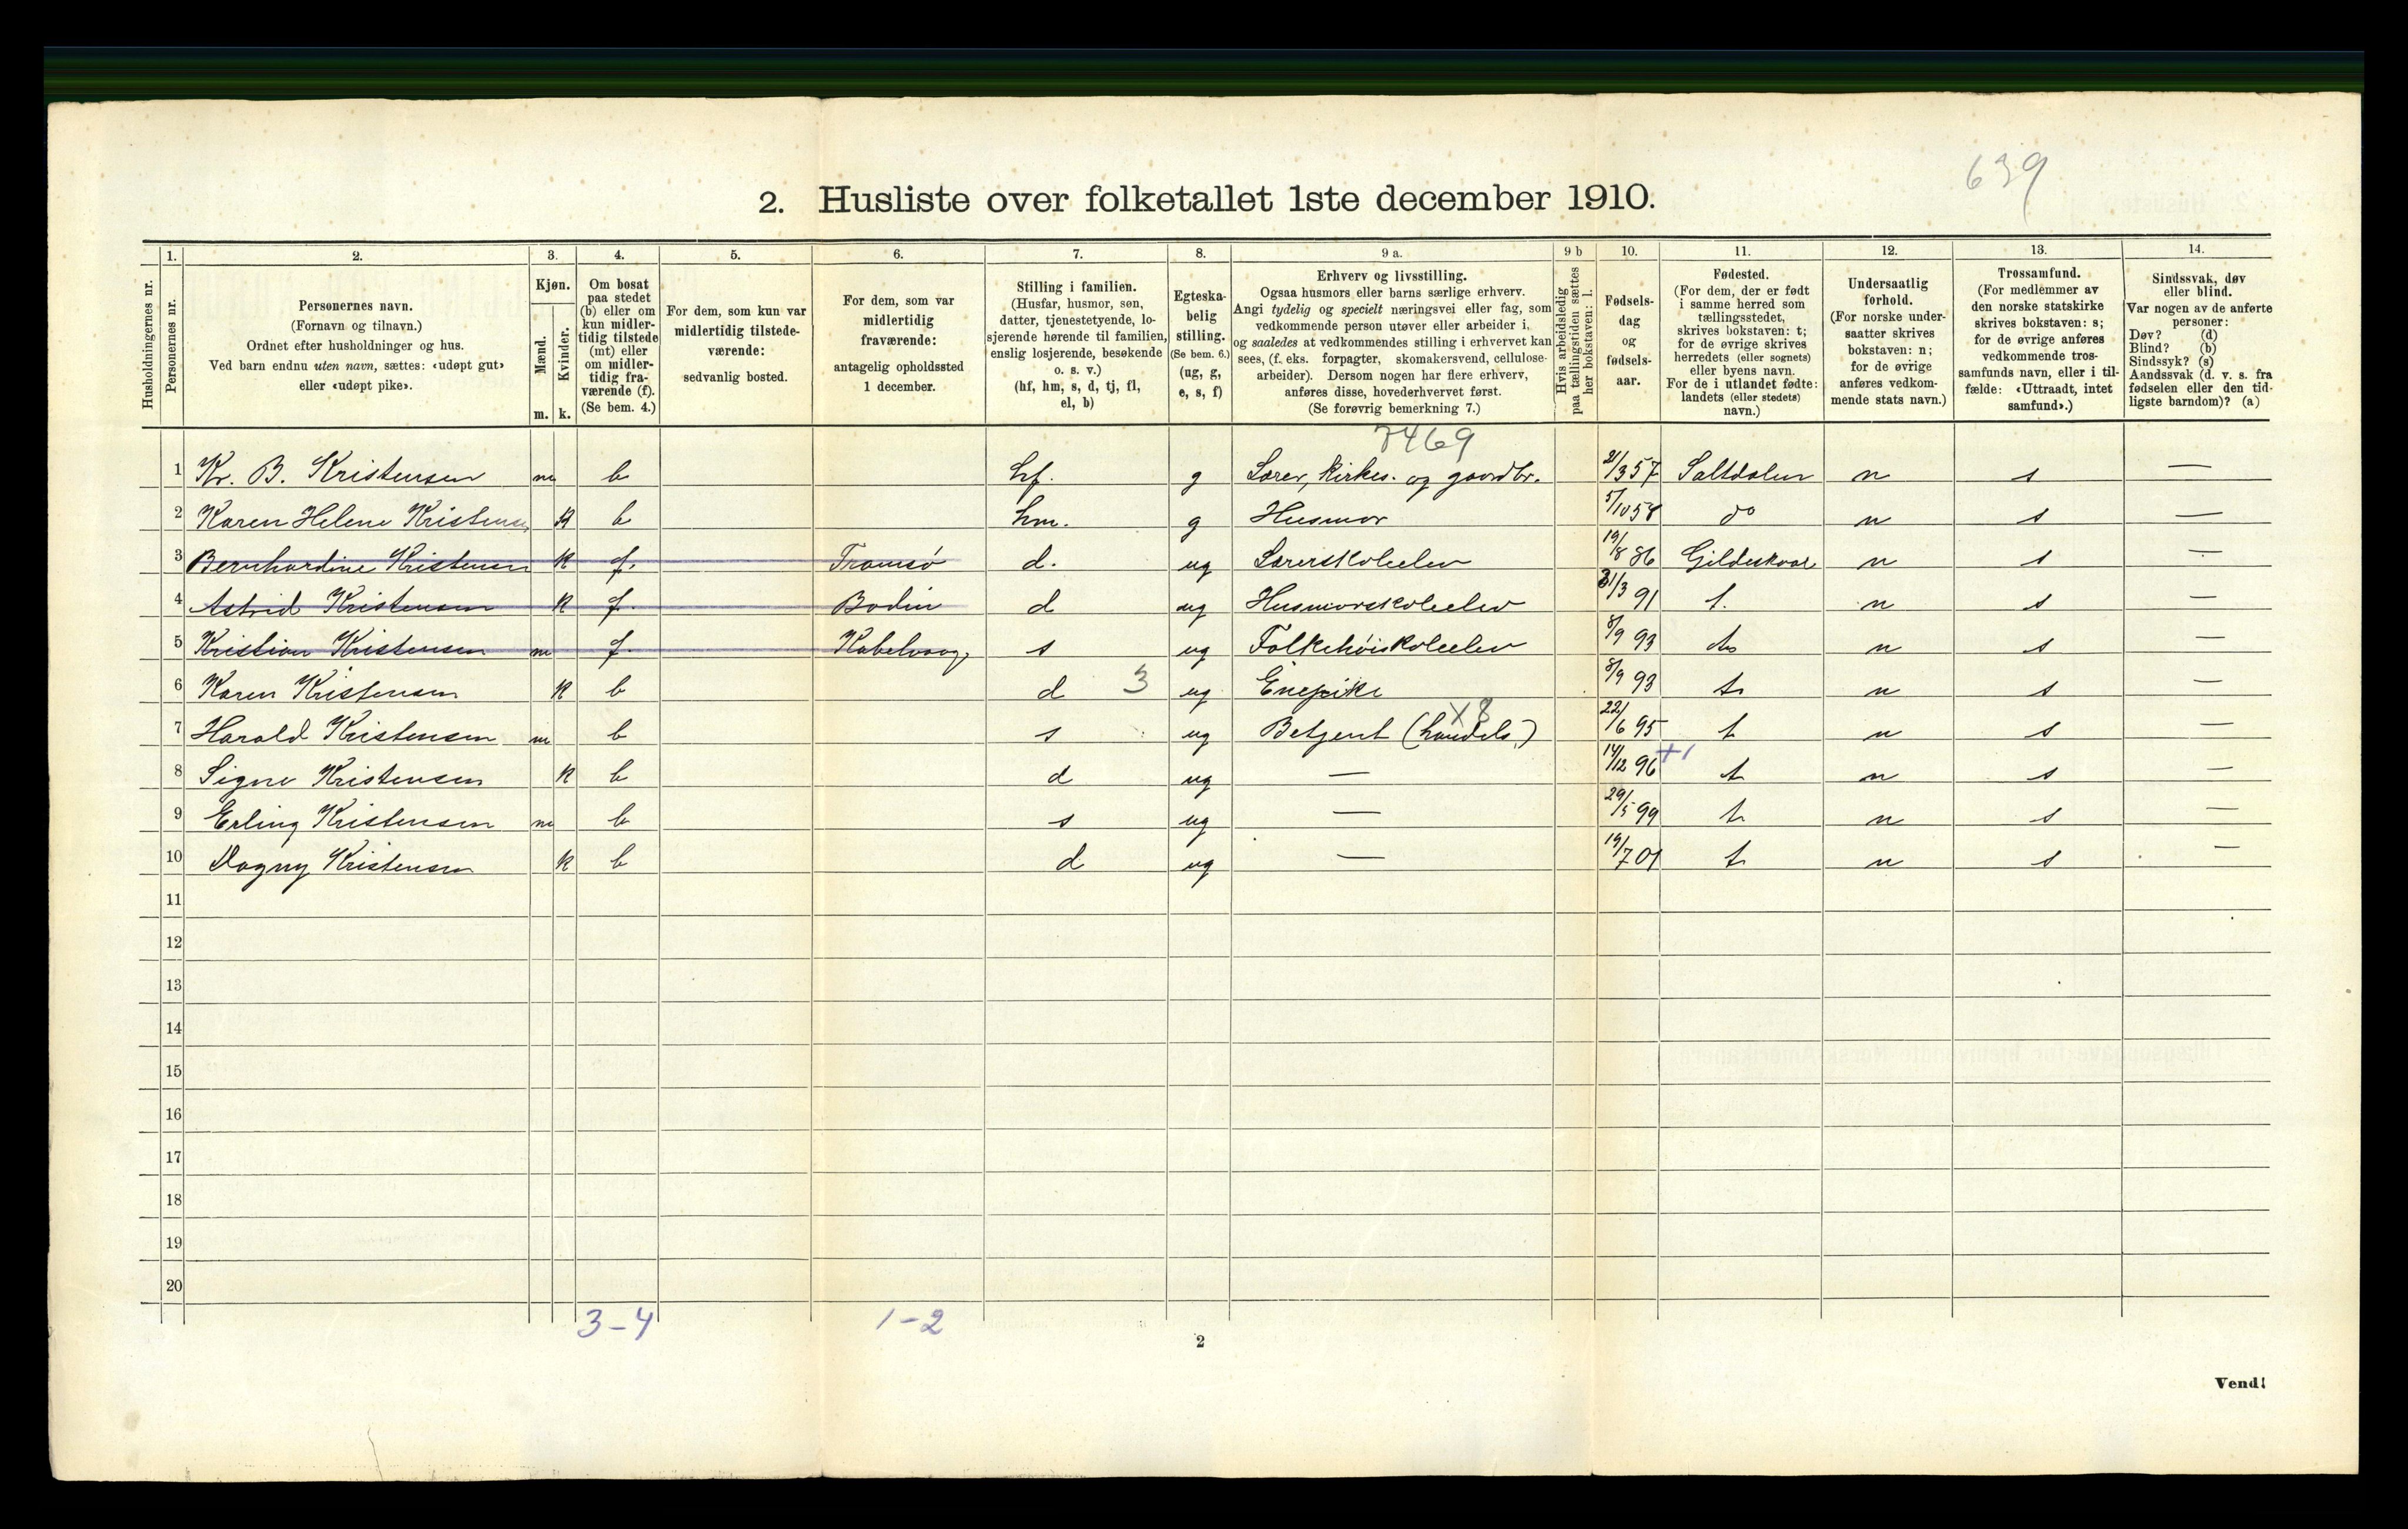 639
2. Husliste over folketallet 1ste december 1910.
1. 2. 3. 4. 5. 6. 7. 8. 9 a. 9 b 10. 11. 12. 13. 14.
Husholdningernes nr.
Personernes nr.
Personernes navn.
(Fornavn og tilnavn.)
Ordnet efter husholdninger og hus.
Ved barn endnu uten navn, sættes: «udøpt gut»
eller «udøpt pike».
Kjøn.
Mænd.
Kvinder.
m. k.
Om bosat
paa stedet
(b) eller om
kun midler-
tidig tilstede
(mt) eller
om midler-
tidig fra-
værende (f).
(Se bem. 4.)
For dem, som kun var
midlertidig tilstede-
værende:
sedvanlig bosted.
For dem, som var
midlertidig
fraværende:
antagelig opholdssted
1 december.
Stilling i familien.
(Husfar, husmor, søn,
datter, tjenestetyende, lo-
sjerende hørende til familien,
enslig losjerende, besøkende
o. s. v.)
(hf, hm, s, d, tj, fl,
el, b)
Egteska-
belig
stilling.
(Se bem. 6.)
(ug, g,
e, s, f)
Erhverv og livsstilling.
Ogsaa husmors eller barns særlige erhverv.
Angi tydelig og specielt næringsvei eller fag, som
vedkommende person utøver eller arbeider i,
og saaledes at vedkommendes stilling i erhvervet kan
sees, (f. eks. forpagter, skomakersvend, cellulose-
arbeider). Dersom nogen har flere erhverv,
anføres disse, hovederhvervet først.
(Se forøvrig bemerkning 7.)
Hvis arbeidsledig
paa tællingstiden sættes
her bokstaven: l.
Fødsels-
dag
og
fødsels-
aar.
Fødested.
(For dem, der er født
i samme herred som
tællingsstedet,
skrives bokstaven: t;
for de øvrige skrives
herredets (eller sognets)
eller byens navn.
For de i utlandet fødte:
landets (eller stedets)
navn.)
Undersaatlig
forhold.
(For norske under-
saatter skrives
bokstaven: n;
for de øvrige
anføres vedkom-
mende stats navn.)
Trossamfund.
(For medlemmer av
den norske statskirke
skrives bokstaven: s;
for de øvrige anføres
vedkommende tros-
samfunds navn, eller i til-
fælde: «Uttraadt, intet
samfund».)
Sindssvak, døv
eller blind.
Var nogen av de anførte
personer:
Døv? (d)
Blind? (b)
Sindssyk? (s)
Aandssvak (d. v. s. fra
fødselen eller den tid-
ligste barndom)? (a)
7469
1 Kr. B. Kristensen m b hf. g Lærer, kirkes. og gaardbr. 21/3 57 Saltdalen n s —
2 Karen Helene Kristensen k b hm. g Husmor 5/10 58 do n s —
3 Bernhardine Kristensen k f. Tromsø d. ug Lærerskoleelev 19/8 86 Gildeskaal n s —
4 Astrid Kristensen k f. Bodin d ug Husmorskoleelev 31/3 91 t. n s —
5 Kristian Kristensen m f. Kabelvaag, s ug Folkehøiskoleelev 8/9 93 n s —
6 Karen Kristensen k b d 3 ug Enepike 8/9 93 t n s —
7 Harald Kristensen m b s ug Betjent (handels.) X8 22/6 95 t n s —
8 Signe Kristensen k b d ug — 14/12 96 +1 t n s —
9 Erling Kristensen m b s ug — 29/5 99 t n s —
10 Dagny Kristensen k b d ug — 19/7 01 t n s —
11
12
13
14
15
16
17
18
19
20
3-4 1-2
2
Vend!